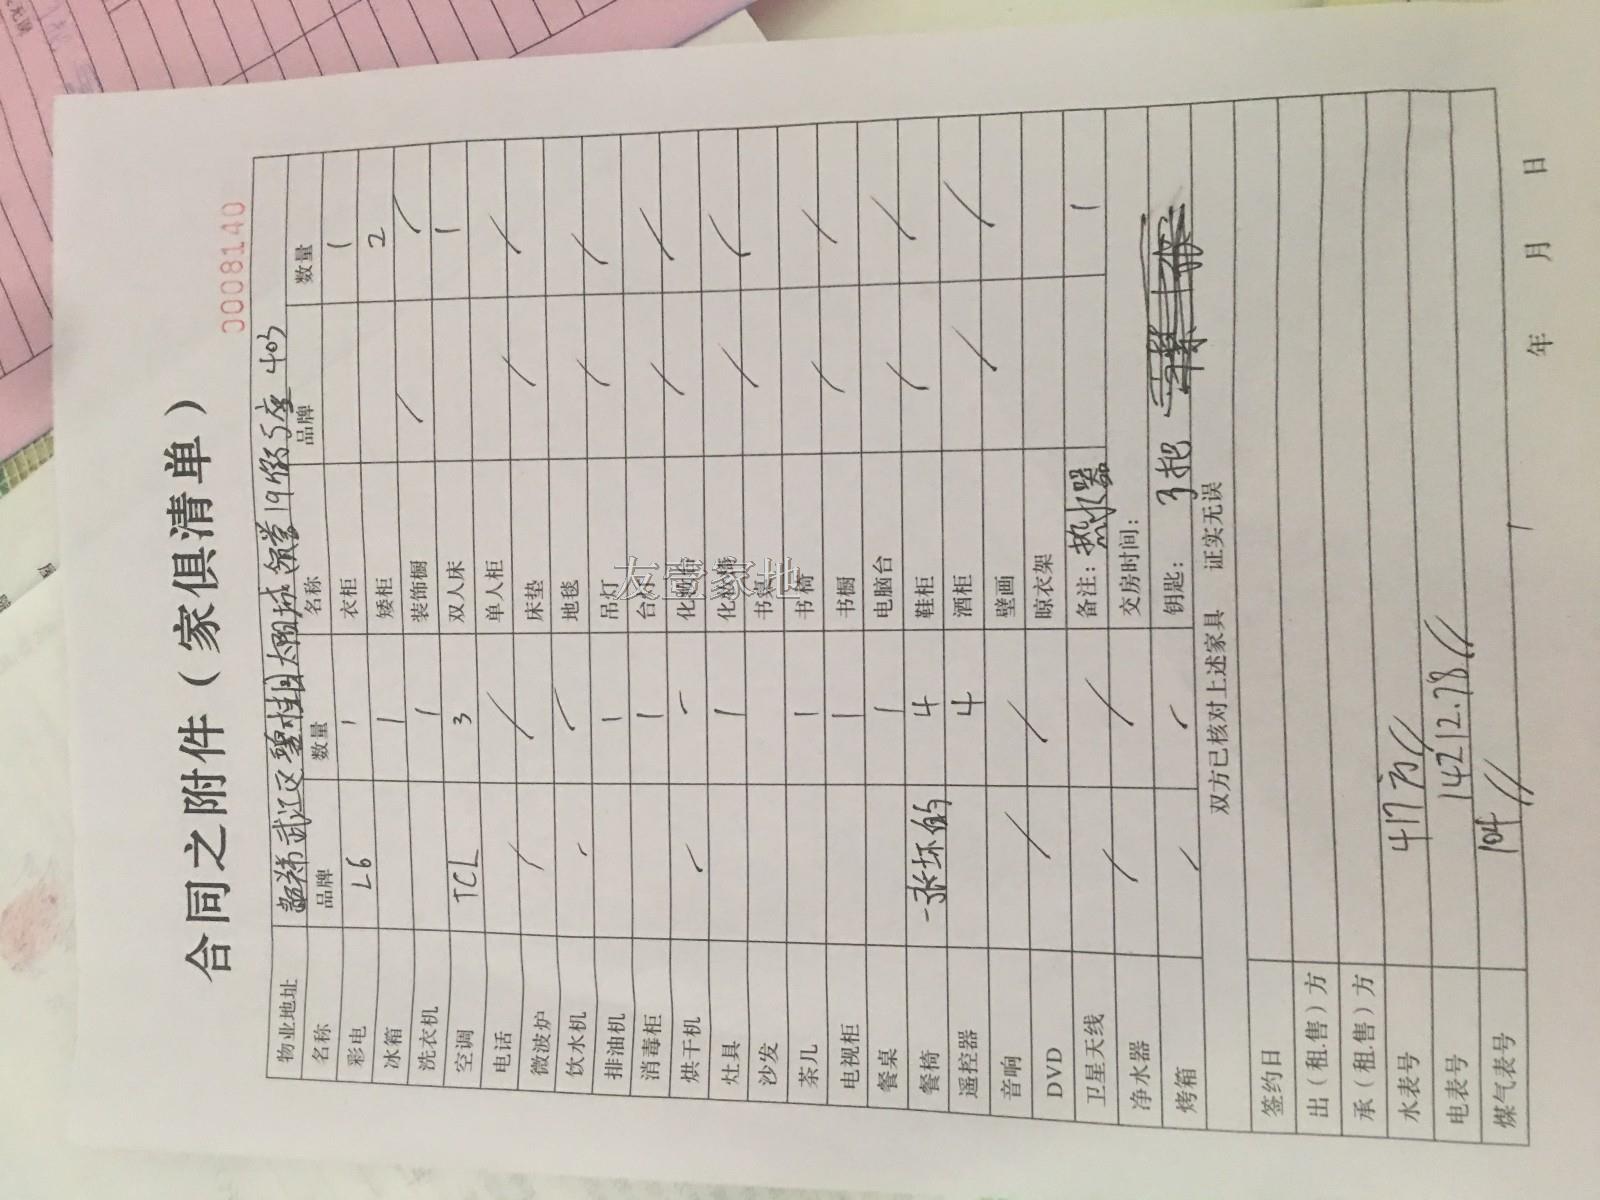 合同之附件（家俱清单）
0008140
物业地址 武江区碧桂园太阳城 19街5座 403
名称 品牌 数量 名称 品牌 数量
彩电 LG 1 衣柜 1
冰箱 1 矮柜 2
洗衣机 1 装饰橱 / /
空调 TCL 3 双人床 1
电话 / / 单人柜 / /
微波炉 床垫
饮水机 地毯 / /
排油机 1 吊灯 / /
消毒柜 1 台
烘干机 化
灶具 1 化
沙发 书
茶几 1 书椅
电视柜 1 书橱
餐桌 1 电脑台
餐椅 一张坏的 4 鞋柜
遥控器 4 酒柜
音响 / / 壁画
DVD 晾衣架
卫星天线 / / 备注：热水器 1
净水器 交房时间：
烤箱 钥匙： 3把
双方已核对上述家具 证实无误
签约日
出（租.售）方
承（租.售）方
水表号 417方//
电表号 14212.78//
煤气表号 104//
年 月 日
友壹家地